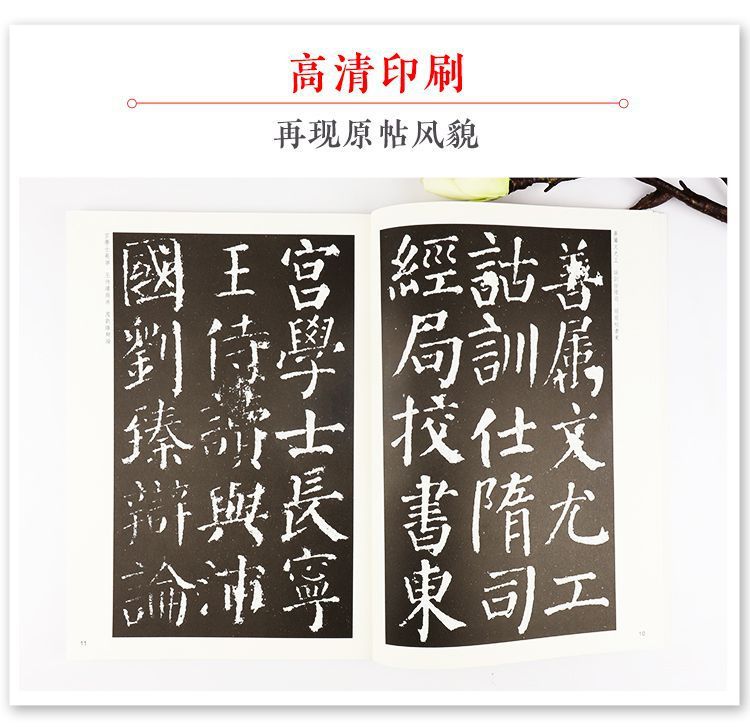 高清印刷
再现原帖风貌
善属文尤工
詁訓仕隋司
經局挍書東
10
宮學士長寧
王侍讀與沛
國劉臻辯論
11